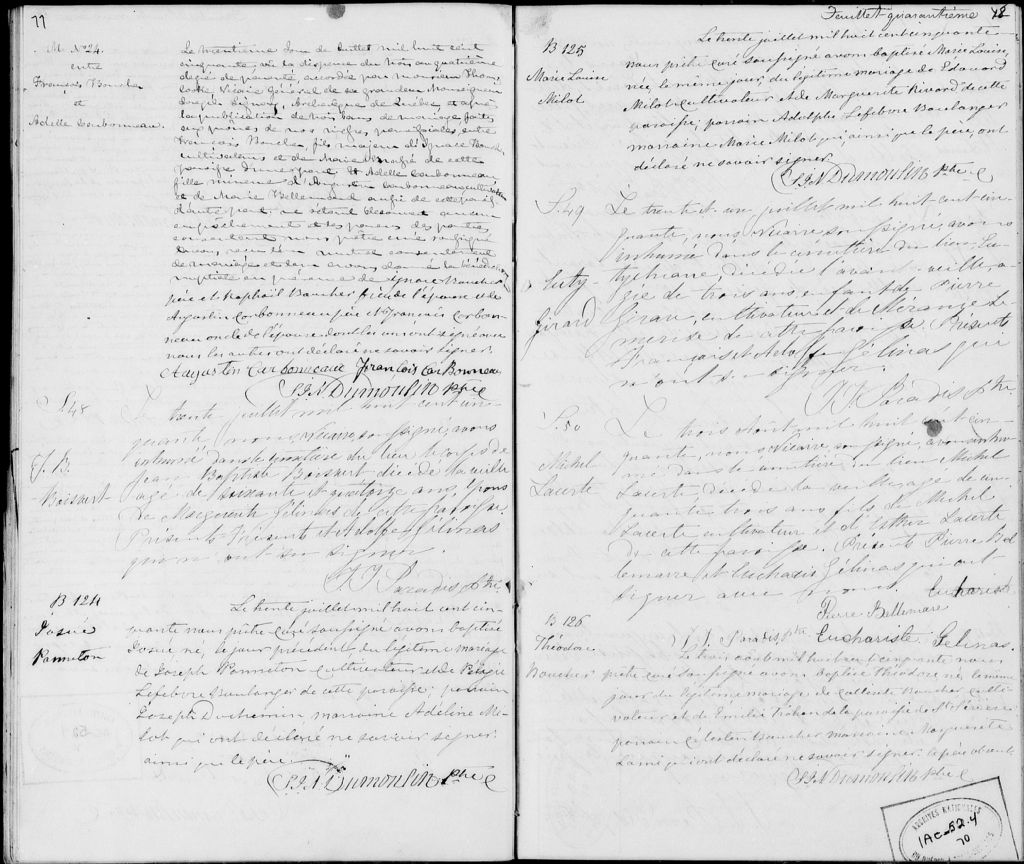 77
M. No 24.
entre
François Boucher
et
Adelle Carbonneau.
Le trentième Jour de Juillet mil huit cent
cinquante, vu la dispense du trois au quatrième
degré de parenté, accordée par monsieur
Vicaire Général de sa grandeur Monseigneur
Joseph Signay, Archevêque de Québec, et après
la publication de trois bans de mariage faite
aux prônes de nos messes paroissiales, entre
François Boucher, fils majeur d'Ignace Boucher
cultivateur et de Marie de cette
paroisse d'une part, Et Adelle Carbonneau,
fille mineure d'Augustin Carbonneau cultivateur
et de Marie Bellemare aussi de cette paroisse
d'autre part, ne s'étant découvert aucun
empêchement et les parens des parties
consentant nous prêtre curé soussigné
avons reçu leur mutuel consentement
de mariage et leur avons donné la bénédiction
nuptiale en présence de Ignace Boucher
père et Raphaël Boucher frère de l'époux et de
Augustin Carbonneau père et François Carbon-
neau oncle de l'épouse dont les uns ont signé avec
nous les autres ont déclaré ne savoir signer.
Augustin Carbonneau François Carbonneau
S. N. Dumoulin Ptre
S. 48
J. B.
Boisvert
Le trente juillet mil huit cent cin-
quante, nous, Vicaire, soussigné, avons
inhumé dans le cimetière du lieu le corps de
Jean Baptiste Boisvert décédé la veille
agé de soixante et quatorze ans, époux
de Marguerite Gélinas de cette paroisse.
Présents François et Adolphe Gélinas
qui n'ont su signer.
J. J. Paradis Ptre
B 124
Josué
Panneton
Le trente juillet mil huit cent cin-
quante nous prêtre curé soussigné avons baptisé
Josué né, le jour précédent, du légitime mariage
de Joseph Panneton cultivateur et de Pélagie
Lefebvre Boulanger de cette paroisse; parrain
Joseph Duchemin, marraine Adéline Mi-
lot qui ont déclaré ne savoir signer
ainsi que le père
S. N. Dumoulin Ptre
Feuillet quarantième 78
B 125
Marie Louise
Milot
Le trente juillet mil huit cent cinquante
nous prêtre curé soussigné avons baptisé Marie Louise,
née, le même jour, du légitime mariage de Edouard
Milot cultivateur et de Marguerite Rivard de cette
paroisse; parrain Adolphe Lefebvre Boulanger
marraine Marie Milot qui, ainsi que le père, ont
déclaré ne savoir signer
S. N. Dumoulin Ptre
S. 49
Girard
Le trente et un juillet mil huit cent cin-
quante, nous, Vicaire, soussigné, avons
inhumé dans le cimetière du lieu,
décédée l'avant-veille, a-
gée de trois ans, enfant de Pierre
Girard, cultivateur et de
de cette paroisse. Présents
François et Adolphe Gélinas qui
n'ont su signer.
J. J. Paradis Ptre
S. 50
Michel
Lacerte
Le trois août mil huit cent cin-
quante, nous, Vicaire, soussigné, avons inhu-
mé dans le cimetière du lieu Michel
Lacerte, décédé la veille, agé de cin-
quante trois ans fils de Michel
Lacerte cultivateur et de Esther Lacerte
de cette paroisse. Présents Pierre Bel
lemare et Eucharis Gélinas qui ont
signer avec nous. Eucharist
Pierre Bellemare
J. J. Paradis Ptre Euchariste Gelinas.
B 126
Théodore
Boucher
Le trois août mil huit cent cinquante nous
prêtre curé soussigné avons baptisé Théodore né le même
jour du légitime mariage de Calixte Boucher culti-
vateur et de Emilie Trahan de la paroisse de St Sévère
parrain Célestin Boucher marraine Marguerite
Lami qui ont déclaré ne savoir signer le père absent
S. N. Dumoulin Ptre
ARCHIVES NATIONALES
1AC-52.4
70